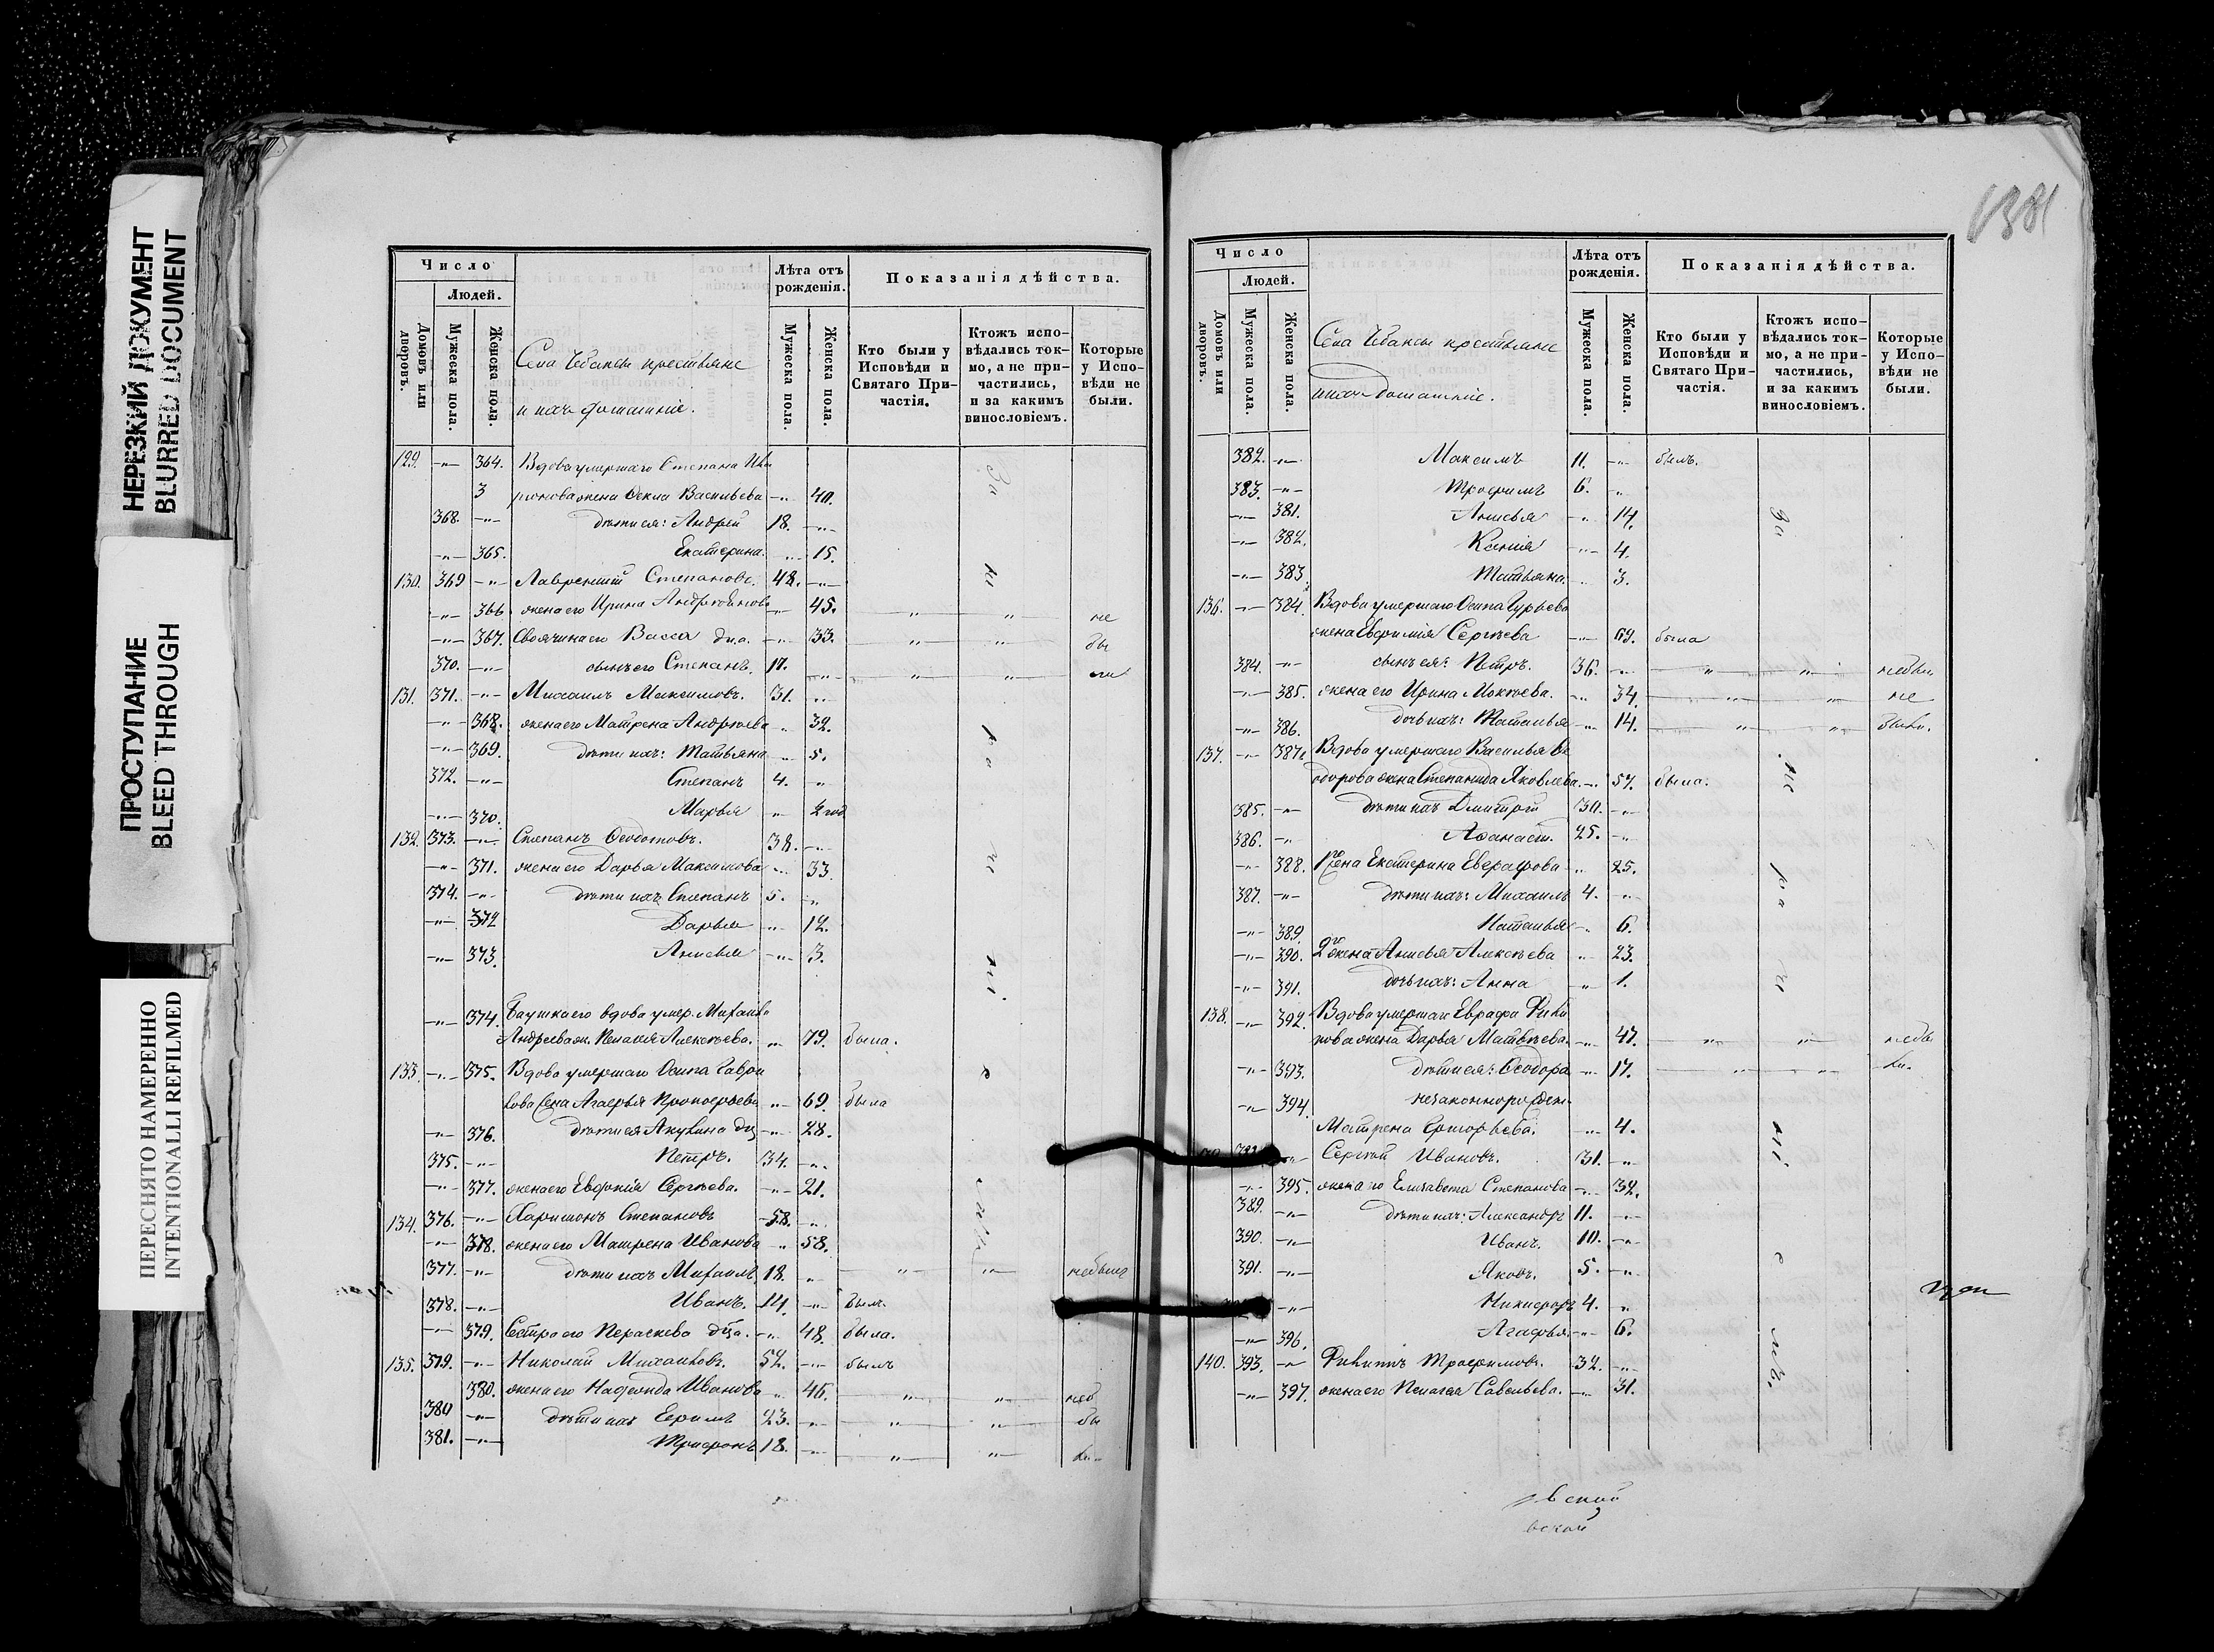 НЕРЕЗКИЙ ДОКУМЕНТ
BLURRED DOCUMENT
ПРОСТУПАНИЕ
BLEED THROUGH
ПЕРЕСНЯТО НАМЕРЕННО
INTENTIONALLI REFILMED
Число
Людей.
Домовъ или дворовъ.
Мужеска пола.
Женска пола.
Села крестьяне
и ихъ домашніе.
Лѣта отъ рожденія.
Мужеска пола.
Женска пола.
Показанія дѣйства.
Кто были у Исповѣди и Святаго Причастія.
Ктожъ исповѣдались токмо, а не причастились, и за какимъ винословіемъ.
Которые у Исповѣди не были.
129. -"- 364. Вдова умершаго Степана
жена Ѳекла Васильева -"- 40.
368. -"- дѣти ея: Андрей 18. -"-
-"- 365. Екатерина. -"- 15.
130. 369 -"- Лаврентій Степановъ. 48. -"-
-"- 366. жена его Ирина -"- 45. " " не
-"- 367. Своячина его Васса дѣв. -"- 33. " " бы
370. -"- сынъ его Степанъ. 17. -"- " " ли
131. 371. -"- Михаилъ Максимовъ. 31. -"-
-"- 368. жена его Матрена Андреева " 32.
-"- 369. дѣти ихъ: Татьяна " 5.
372. -"- Степанъ 4. -"
-"- 370. Марья " ½ год
132. 373. -"- Степанъ Ѳедотовъ. 38. -"-
-"- 371. жена его Дарья Максимова -"- 33.
374. -"- дѣти ихъ Степанъ 5. -"
-"- 372 Дарья -"- 12.
-"- 373. Анисья -"- 3.
-"- 374. вдова умер. Михаила
Андреева ж. Пелагія Алексѣева. " 79. была.
133. -"- 375. Вдова умершаго Осипа Гаври
лова жена Агафья Прокофьева " 69. была
-"- 376. дѣти ея Акулина дѣв -"- 28.
375. -"- Петръ. 34. -"-
-"- 377. жена его Евдокія Сергѣева. -"- 21.
134. 376. -"- Харитонъ Степановъ 58. -"-
-"- 378. жена его Матрена Иванова " 58.
377. -"- дѣти ихъ Михаилъ 18. " " " небылъ
378. -"- Иванъ. 14. -"- былъ.
-"- 379. Сестра его Параскева дѣв. -"- 48. была.
135. 379. -"- Николай Михаиловъ. 52. -"- былъ
380. жена его Иванова " 46. " " неб
380 -"- дѣти ихъ Ефимъ 23. -"- " " бы
381. -"- Трифонъ 18. -"- " " ли
За
не
ра
че
ні
е
381
Число
Людей.
Домовъ или дворовъ.
Мужеска пола.
Женска пола.
Села крестьяне
и ихъ домашніе.
Лѣта отъ рожденія.
Мужеска пола.
Женска пола.
Показанія дѣйства.
Кто были у Исповѣди и Святаго Причастія.
Ктожъ исповѣдались токмо, а не причастились, и за какимъ винословіемъ.
Которые у Исповѣди не были.
382. -"- Максимъ 11. -"- былъ.
383. -"- Трофимъ 6. -"
-"- 381. Анисья -" 14.
-"- 382. Ксенія -"- 4.
-"- 383. Татьяна. " 3.
136. -"- 384. Вдова умершаго Осипа Гурьева
жена Евфимія Сергѣева -"- 69. была
384. -"- сынъ ея: Петръ. 36. -" " " небыл
-"- 385. жена его Ирина -" 34. " " не
-"- 386. дочь ихъ: Наталья -" 14. " " были.
137. -"- 387. Вдова умершаго Василья Ѳе
дорова жена Степанида Яковлева. -" 57. была.
385. -" дѣти ихъ Дмитрій 30. -"
386. -" Аѳанасій. 25. -"
-"- 388. 1го жена Екатерина Евграфова " 25.
387. -"- дѣти ихъ: Михаилъ 4. -"
-"- 389. Наталья -" 6.
-"- 390. 2го жена Анисья Алексѣева " 23.
-"- 391. дочь ихъ: Анна " 1.
138. -"- 392. Вдова умершаго Евграфа Фили
пова жена Дарья Матвѣева. -" 47. " " небы
-"- 393. дѣти ея: Ѳеодора -" 17. " " ли.
-"- 394. незаконнорожден.
Матрена Григорьева. -"- 4.
-"- Сергѣй Ивановъ. 31. -"
-"- 395. жена его Елизавета Степанова -"- 32.
389. -"- дѣти ихъ: Александръ 11. -"-
390. -"- Иванъ. 10. -"-
391. -"- Яковъ. 5. -"-
-"- Никифоръ 4. "
-"- 396. Агафья -"- 6.
140. 393. -"- Филиппъ Трофимовъ. 32. -"-
-"- 397. жена его Пелагея Савельева. -" 31.
За
не
ра
че
ні
е
мъ.
вской
вской